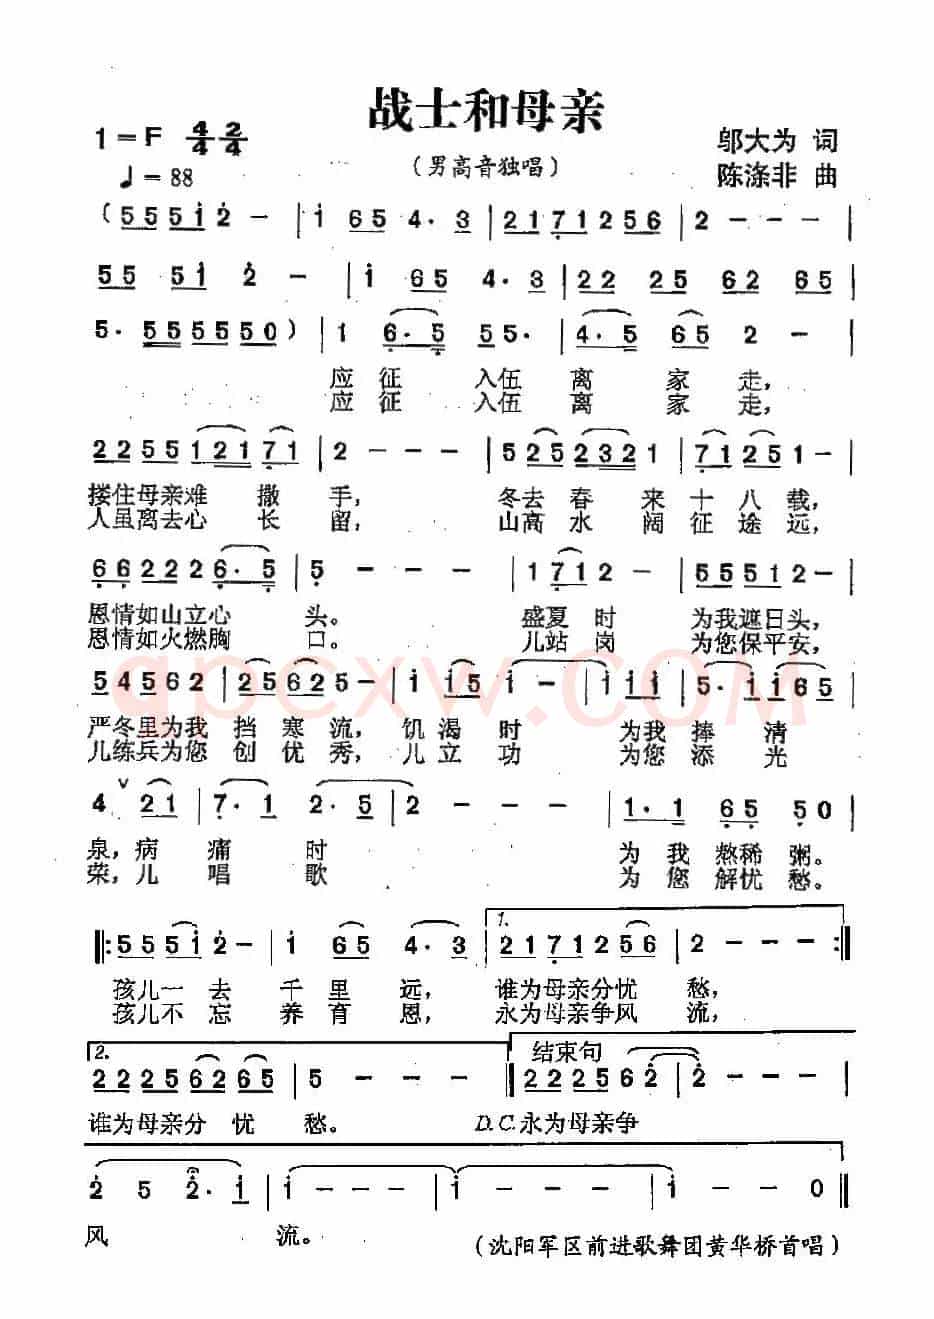 战士和母亲
1=F 4/4 2/4
邬大为 词
♩=88
(男高音独唱)
陈涤非 曲
(5 5 5 i 2 - | i 6 5 4 · 3 | 2 1 7 1 2 5 6 | 2 - - - |
5 5 5 i 2 - | i 6 5 4 · 3 | 2 2 2 5 6 2 6 5 |
5 · 5 5 5 5 5 0) | 1 6 · 5 5 5 · | 4 · 5 6 5 2 - |
应 征 入伍 离 家 走,
应 征 入伍 离 家 走,
2 2 5 5 1 2 1 7 1 | 2 - - - | 5 2 5 2 3 2 1 | 7 1 2 5 1 - |
搂住母亲难 撒 手, 冬去 春 来 十 八 载,
人虽离去心 长 留, 山高 水 阔 征 途 远,
6 6 2 2 2 6 · 5 | 5 - - - | 1 7 1 2 - | 5 5 5 1 2 - |
恩情如山立心 头。 盛夏 时 为我遮日头,
恩情如火燃胸 口。 儿站 岗 为您保平安,
5 4 5 6 2 | 2 5 6 2 5 - | i i 5 i - | i i i | 5 · i i 6 5 |
严冬里为我 挡 寒 流, 饥 渴 时 为我 捧 清
儿练兵为您 创 优 秀, 儿 立 功 为您 添 光
4 ∨ 2 1 | 7 · 1 2 · 5 | 2 - - - | 1 · 1 6 5 5 0 |
泉, 病 痛 时 为 我 熬稀 粥。
荣, 儿 唱 歌 为 您 解忧 愁。
‖: 5 5 5 i 2 - | i 6 5 4 · 3 | 1. 2 1 7 1 2 5 6 | 2 - - - :‖
孩儿一 去 千 里 远, 谁为母亲分忧 愁,
孩儿不 忘 养 育 恩, 永为母亲争风 流,
2. 结束句
2 2 2 5 6 2 6 5 | 5 - - - ‖ 2 2 2 5 6 2 | 2 - - - |
谁为母亲分 忧 愁。 D.C.永为母亲争
2 5 2 · i | i - - - | i - - - | i - - 0 ‖
风 流。
(沈阳军区前进歌舞团黄华桥首唱)
qpcxw.COM